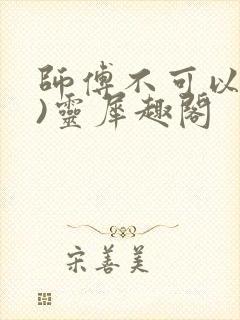 師傅不可以
)靈犀趣閣
宋善美